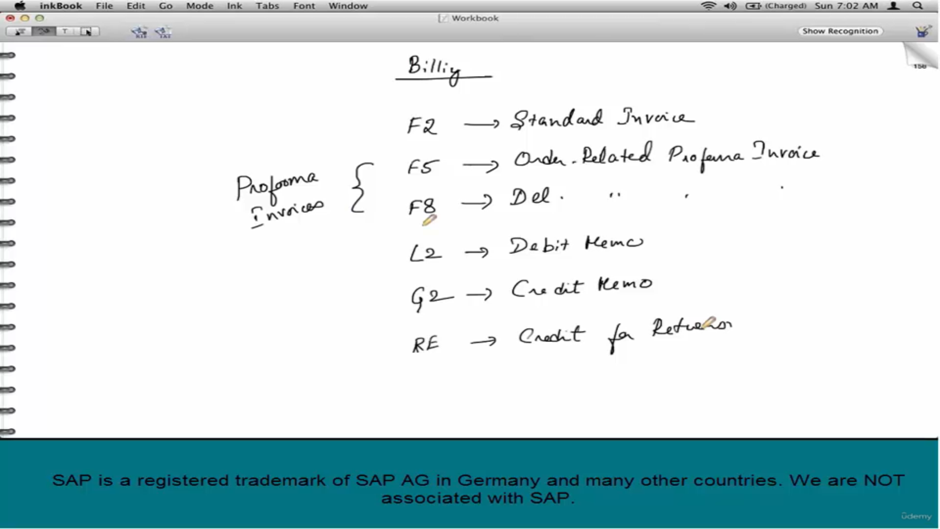 inkBook File Edit Go Mode Ink Tabs Font Window (Charged) Sun 7:02 AM
Workbook
T Show Recognition
150
Billiy
F2 → Standard Invoice
F5 → Order-Related Proforma Invoice
Proforma Invoices { F8 → Del. " " "
L2 → Debit Memo
G2 → Credit Memo
RE → Credit for Returns
SAP is a registered trademark of SAP AG in Germany and many other countries. We are NOT
associated with SAP.
ûdemy